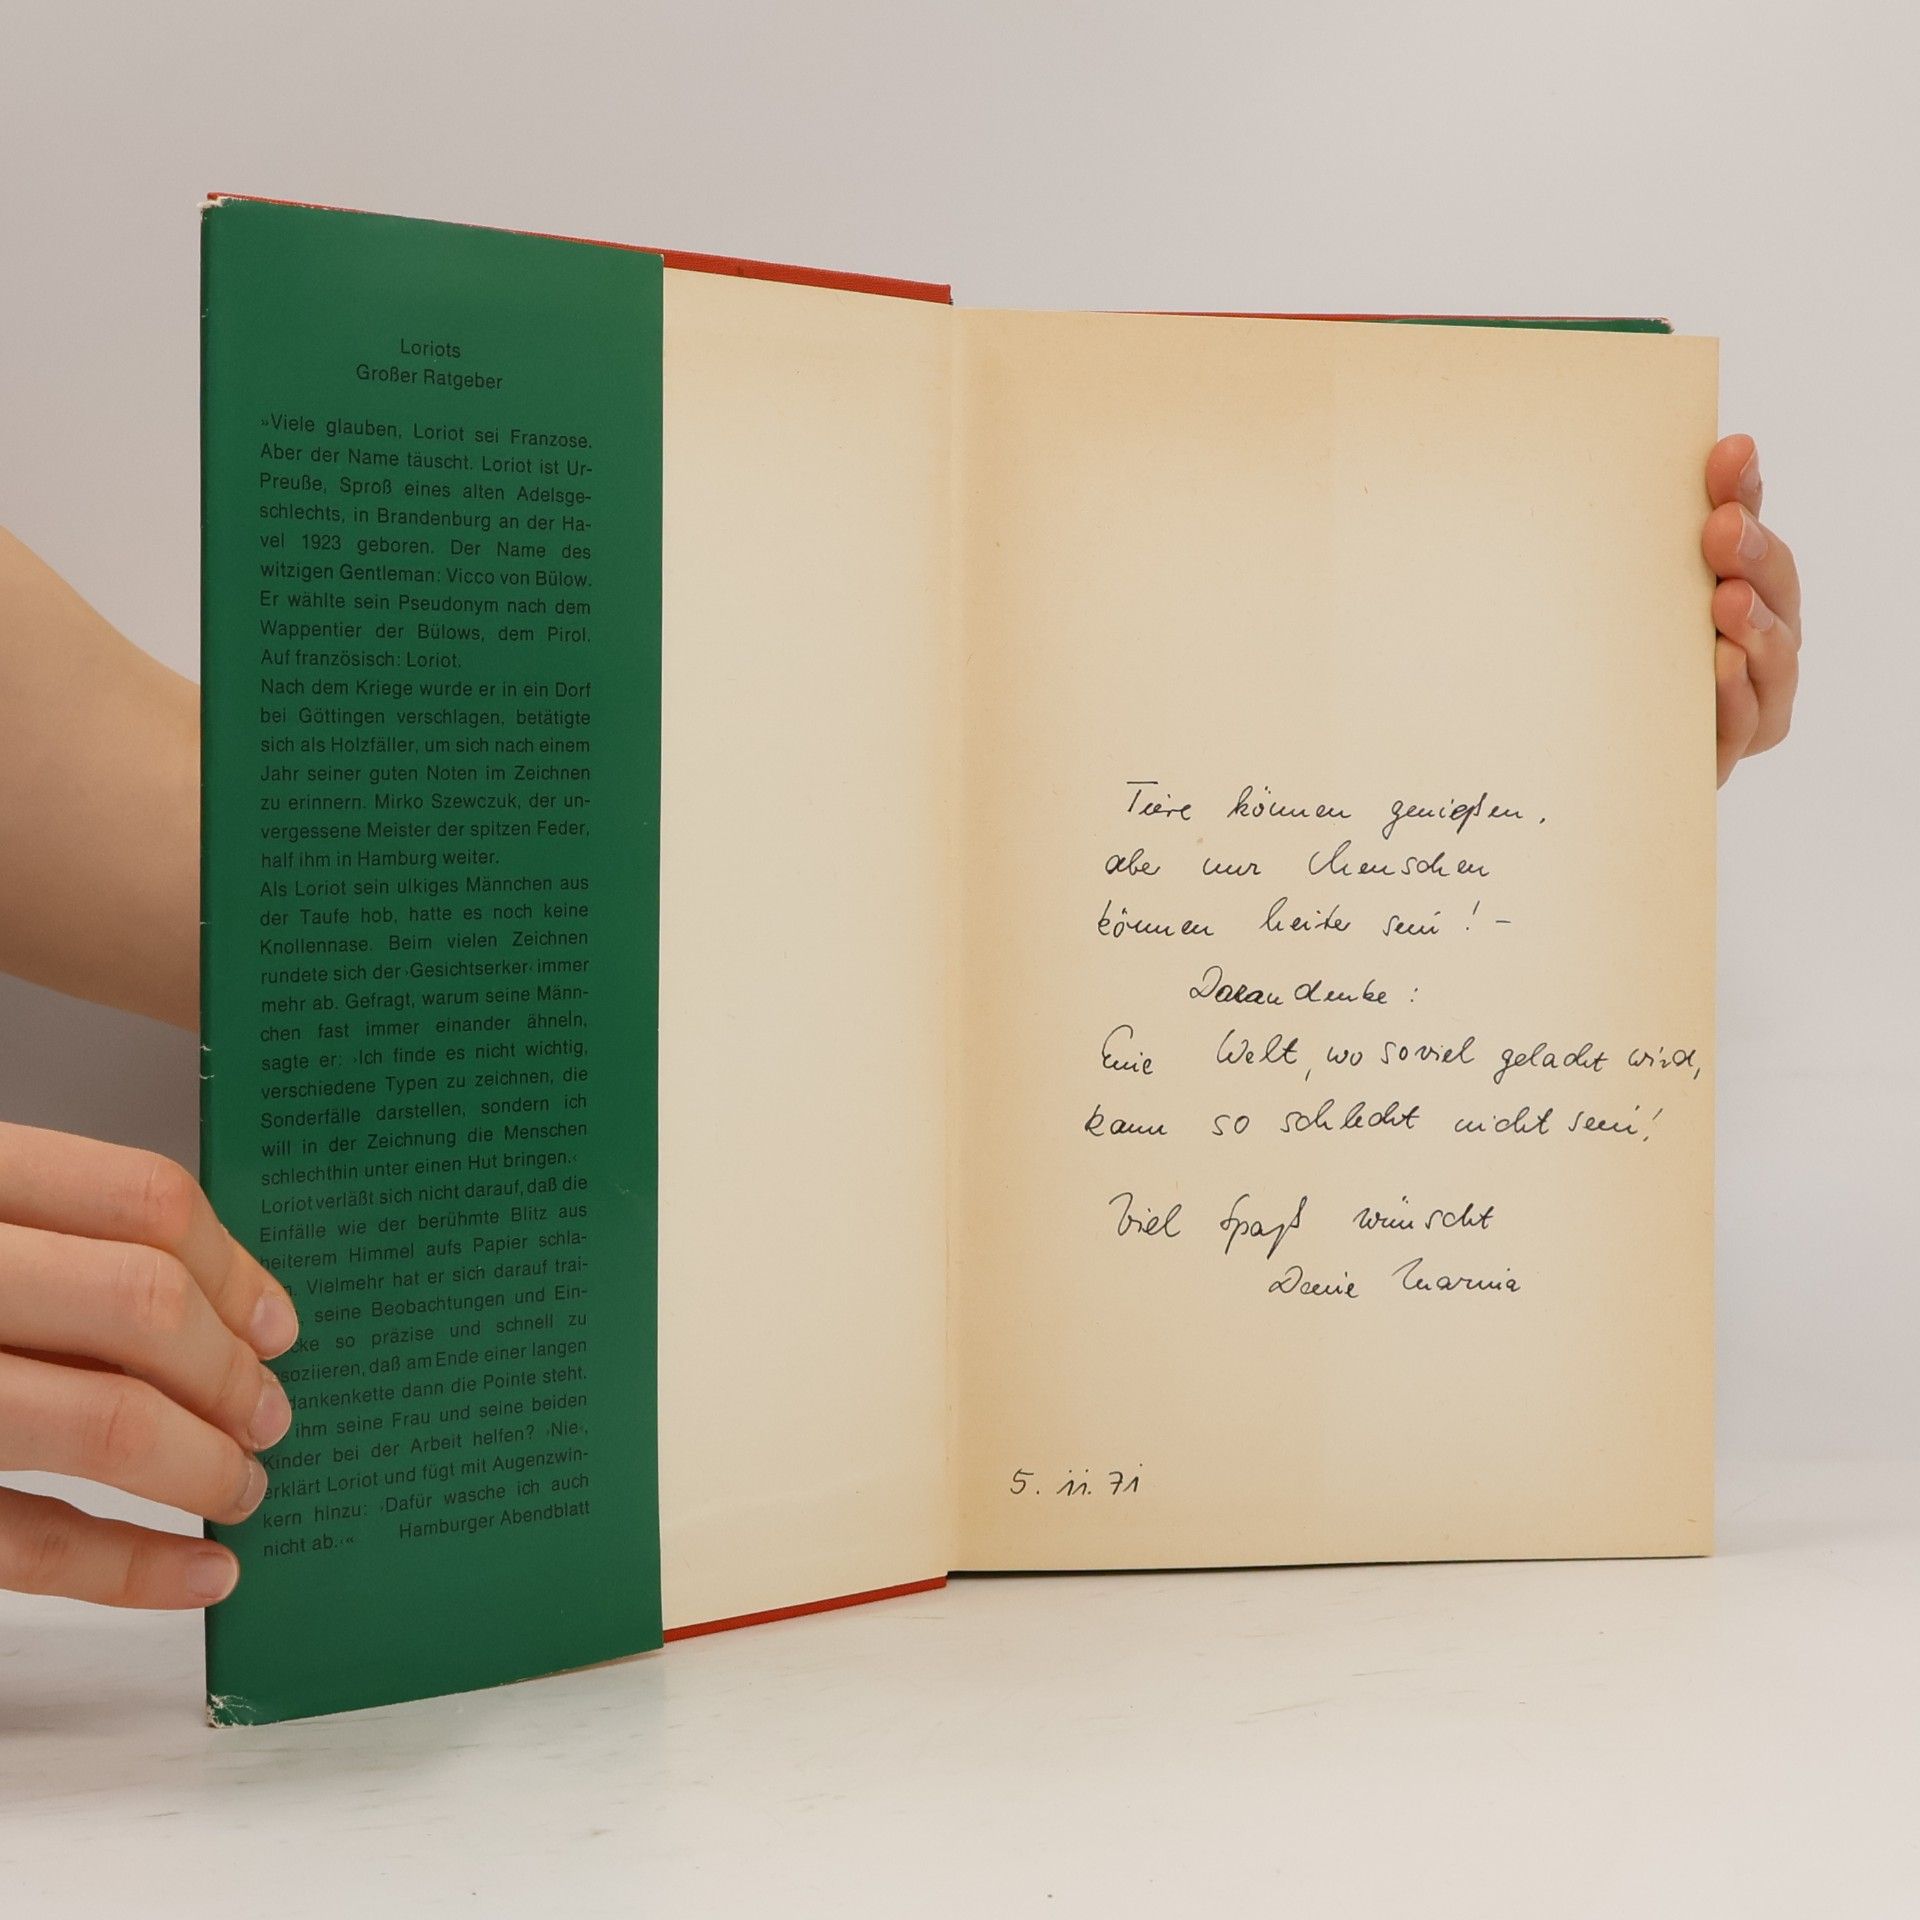 Loriots
Großer Ratgeber
»Viele glauben, Loriot sei Franzose.
Aber der Name täuscht. Loriot ist Ur-
Preuße, Sproß eines alten Adelsge-
schlechts, in Brandenburg an der Ha-
vel 1923 geboren. Der Name des
witzigen Gentleman: Vicco von Bülow.
Er wählte sein Pseudonym nach dem
Wappentier der Bülows, dem Pirol.
Auf französisch: Loriot.
Nach dem Kriege wurde er in ein Dorf
bei Göttingen verschlagen, betätigte
sich als Holzfäller, um sich nach einem
Jahr seiner guten Noten im Zeichnen
zu erinnern. Mirko Szewczuk, der un-
vergessene Meister der spitzen Feder,
half ihm in Hamburg weiter.
Als Loriot sein ulkiges Männchen aus
der Taufe hob, hatte es noch keine
Knollennase. Beim vielen Zeichnen
rundete sich der ›Gesichtserker‹ immer
mehr ab. Gefragt, warum seine Männ-
chen fast immer einander ähneln,
sagte er: ›Ich finde es nicht wichtig,
verschiedene Typen zu zeichnen, die
Sonderfälle darstellen, sondern ich
will in der Zeichnung die Menschen
schlechthin unter einen Hut bringen.‹
Loriot verläßt sich nicht darauf, daß die
Einfälle wie der berühmte Blitz aus
heiterem Himmel aufs Papier schla-
Vielmehr hat er sich darauf trai-
seine Beobachtungen und Ein-
so präzise und schnell zu
soziieren, daß am Ende einer langen
dankenkette dann die Pointe steht.
ihm seine Frau und seine beiden
Kinder bei der Arbeit helfen? ›Nie‹,
erklärt Loriot und fügt mit Augenzwin-
kern hinzu: ›Dafür wasche ich auch
nicht ab.‹« Hamburger Abendblatt
Tiere können genießen,
aber nur Menschen
können heiter sein! –
Daran denke:
Eine Welt, wo soviel gelacht wird,
kann so schlecht nicht sein!
Viel Spaß wünscht
Deine Mama
5. 11. 71